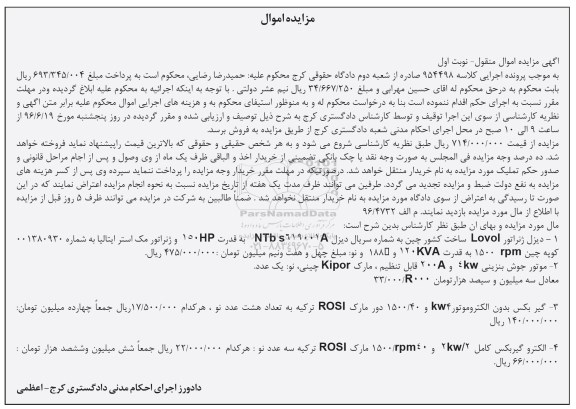 مزایده اموال
آگهی مزایده اموال منقول- نوبت اول
به موجب پرونده اجرایی کلاسه ۹۵۴۴۹۸ صادره از شعبه دوم دادگاه حقوقی کرج محکوم علیه: حمیدرضا رضایی، محکوم است به پرداخت مبلغ ۶۹۳/۳۴۵/۰۰۴ ریال
بابت محکوم به درحق محکوم له اقای حسین مهرابی و مبلغ ۳۴/۶۶۷/۲۵۰ ریال نیم عشر دولتی . با توجه به اینکه اجرائیه به محکوم علیه ابلاغ گردیده ودر مهلت
مقرر نسبت به اجرای حکم اقدام ننموده است بنا به درخواست محکوم له و به منظور استیفای محکوم به و هزینه های اجرایی اموال محکوم علیه برابر متن اگهی و
نظریه کارشناسی از سوی این اجرا توقیف و توسط کارشناس دادگستری کرج به شرح ذیل توصیف و ارزیابی شده و مقرر گردیده در روز پنجشنبه مورخ ۹۶/۶/۱۹ از
ساعت ۹ الی ۱۰ صبح در محل اجرای احکام مدنی شعبه دادگستری کرج از طریق مزایده به فروش برسد.
مزایده از قیمت ۷۱۴/۰۰۰/۰۰۰ ریال طبق نظریه کارشناسی شروع می شود و به هر شخص حقیقی و حقوقی که بالاترین قیمت راپیشنهاد نماید فروخته خواهد
شد. ده درصد وجه مزایده فی المجلس به صورت وجه نقد یا چک بانکی تضمینی از خریدار اخذ و الباقی ظرف یک ماه از وی وصول و پس از اجام مراحل قانونی و
صدور حکم تملیک مورد مزایده به نام خریدار منتقل خواهد شد. درصورتیکه در مهلت مقرر خریدار وجه مزایده را پرداخت ننماید سپرده وی پس از کسر هزینه های
مزایده به نفع دولت ضبط و مزایده تجدید می گردد. طرفین می توانند ظرف مدت یک هفته از تاریخ مزایده نسبت به نحوه انجام مزایده اعتراض نمایند که در این
صورت تا رسیدگی به اعتراض از سوی دادگاه مورد مزایده به نام خریدار منتقل نخواهد شد . ضمناً طالبین به شرکت در مزایده می توانند ظرف ۵ روز قبل از مزایده
با اطلاع از مال مورد مزایده بازدید نمایند. م الف ۹۶/۴۷۳۲
مال مورد مزایده و بهای ان طبق نظر کارشناس بدین شرح است:
۱ - دیزل ژنراتور Lovol ساخت کشور چین به شماره سریال دیزل NTb به قدرت ۱۵۰HP و ژنراتور مک استر ایتالیا به شماره ۰۰۱۳۸۰۹۳۰
کوپه چین rpm ۱۵۰۰ به قدرت ۱۲۰KVA و ۱۸۸ و نو: مبلغ چهل و هفت ونیم میلیون تومان :۴۷۵/۰۰۰/۰۰۰ ریال.
۲- موتور جوش بنزینی ۴kw و ۲۰۰A قابل تنظیم ، مارک Kipor چینی، نو: یک عدد.
معادل سه میلیون و سیصد هزارتومان ۳۳/۰۰۰/R۰۰۰
۳- گیر بکس بدون الکتروموتور۴kw و ۱۵۰۰/۴۰ دور مارک ROSI ترکیه به تعداد هشت عدد نو ، هرکدام ۱۷/۵۰۰/۰۰۰ریال جمعاً چهارده میلیون تومان:
۱۴۰/۰۰۰/۰۰۰ ریال
۴- الکترو گیربکس کامل ۲/۲kw و ۱۵۰۰/rpm۴۰ مارک ROSI ترکیه سه عدد نو : هرکدام ۲۲/۰۰۰/۰۰۰ ریال جمعاً شش میلیون وششصد هزار تومان :
۶۶/۰۰۰/۰۰۰ ریال.
دادورز اجرای احکام مدنی دادگستری کرج - اعظمی